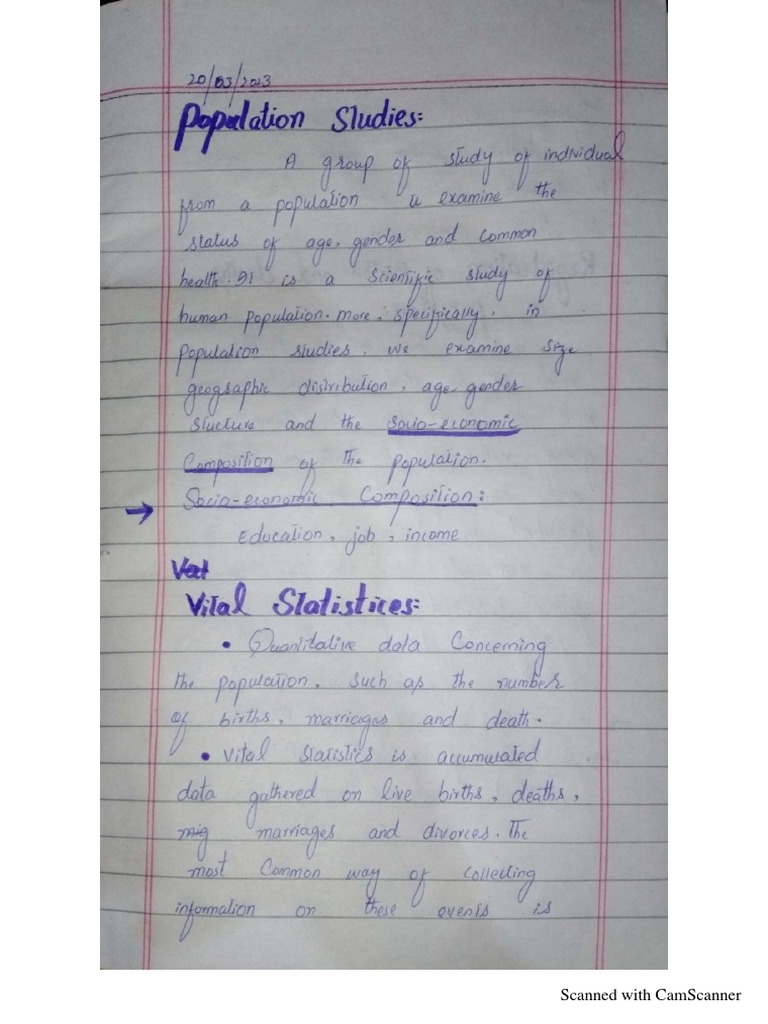 20/03/2023
Population Studies:
A group of study of individual
from a population u examine the
status of age, gender and common
health. It is a scientific study of
human population. more, specifically, in
population studies, we examine size
geographic distribution, age gender
stucture and the Socio-economic
Composition of the population.
→ Socio-economic Composition:
Education, job, income
Vect
Vital Statistices:
• Quantitative data Concerning
the population, such as the number
of births, marriages and death.
• Vital statistics is accumulated
data gathered on live births, deaths,
mig marriages and divorces. The
most Common way of collecting
information on these events is
Scanned with CamScanner